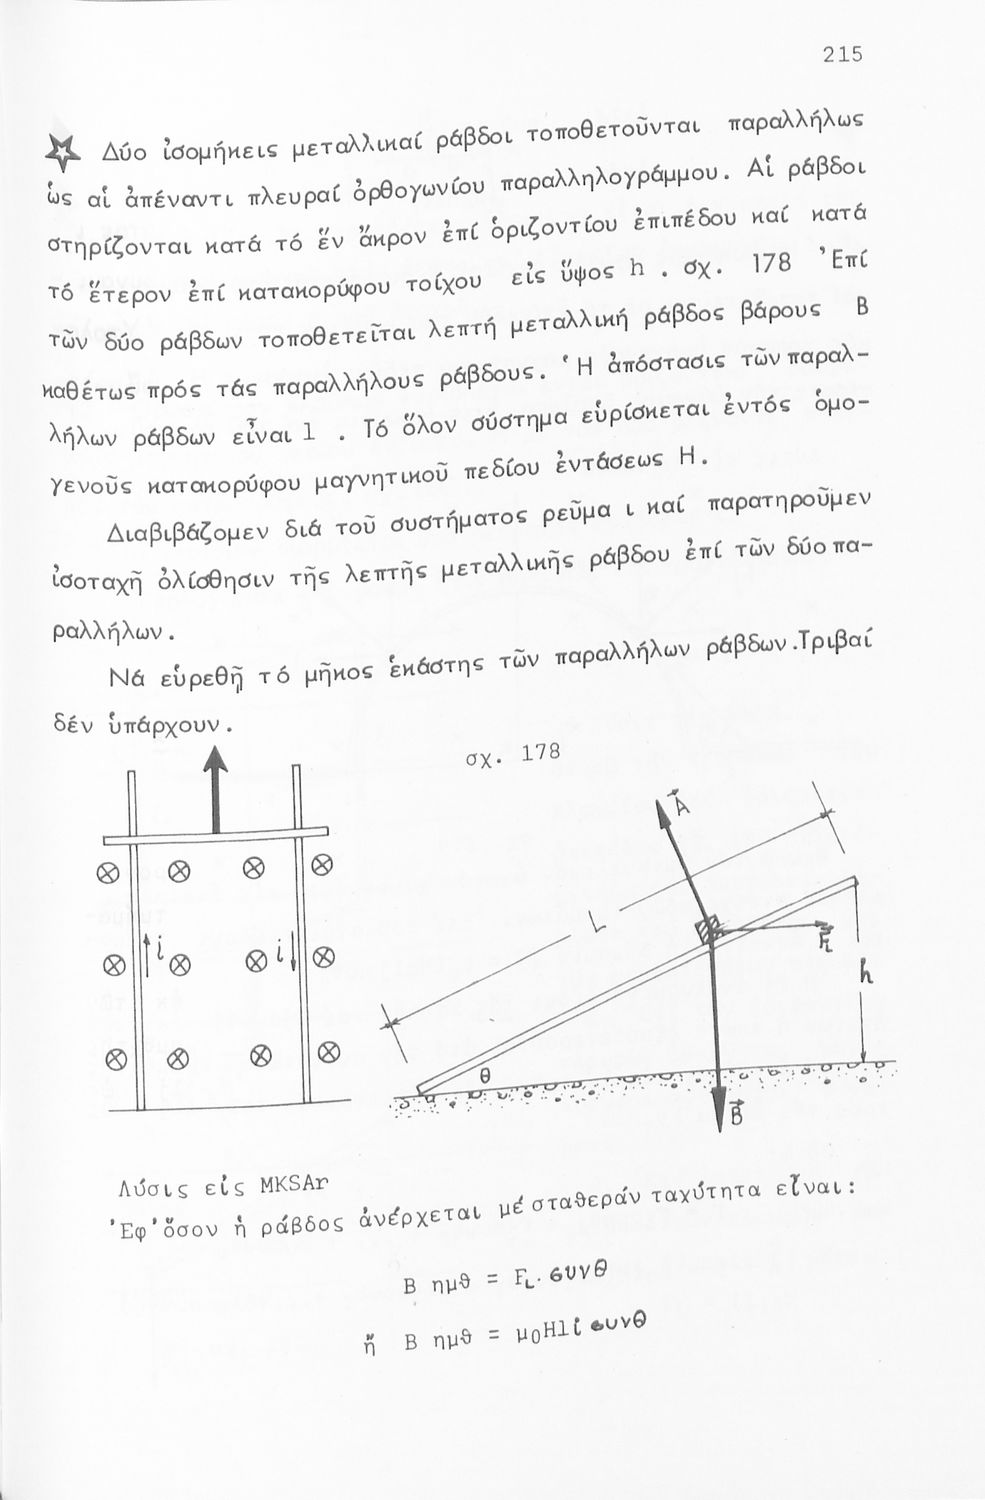 215
Δύο ἰσομήκεις μεταλλικαί ράβδοι τοποθετοῦνται παραλλήλως
ὡς αἱ ἀπέναντι πλευραί ὀρθογωνίου παραλληλογράμμου. Αἱ ράβδοι
στηρίζονται κατά τό ἕν ἄκρον ἐπί ὁριζοντίου ἐπιπέδου καί κατά
τό ἕτερον ἐπί κατακορύφου τοίχου εἰς ὕψος h . σχ. 178 Ἐπί
τῶν δύο ράβδων τοποθετεῖται λεπτή μεταλλική ράβδος βάρους B
καθέτως πρός τάς παραλλήλους ράβδους. Ἡ ἀπόστασις τῶν παραλ-
λήλων ράβδων εἶναι l . Τό ὅλον σύστημα εὑρίσκεται ἐντός ὁμο-
γενοῦς κατακορύφου μαγνητικοῦ πεδίου ἐντάσεως H.
Διαβιβάζομεν διά τοῦ συστήματος ρεῦμα ι καί παρατηροῦμεν
ἰσοταχῆ ὀλίσθησιν τῆς λεπτῆς μεταλλικῆς ράβδου ἐπί τῶν δύο πα-
ραλλήλων.
Νά εὑρεθῇ τό μῆκος ἑκάστης τῶν παραλλήλων ράβδων.Τριβαί
δέν ὑπάρχουν.
σχ. 178
A
L
F_L
i
i
h
θ
B
Λύσις εἰς MKSAr
Ἐφ'ὅσον ἡ ράβδος ἀνέρχεται μέ σταθεράν ταχύτητα εἶναι:
B ημθ = F_L. συνθ
ἤ B ημθ = μ₀Hli συνθ